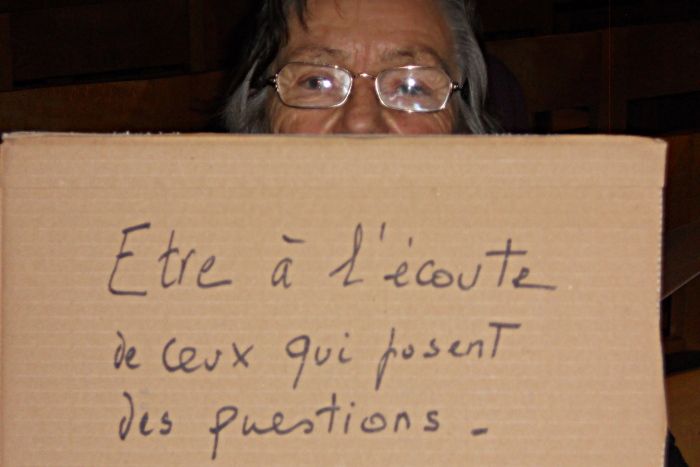 Etre à l'écoute
de ceux qui posent
des questions -